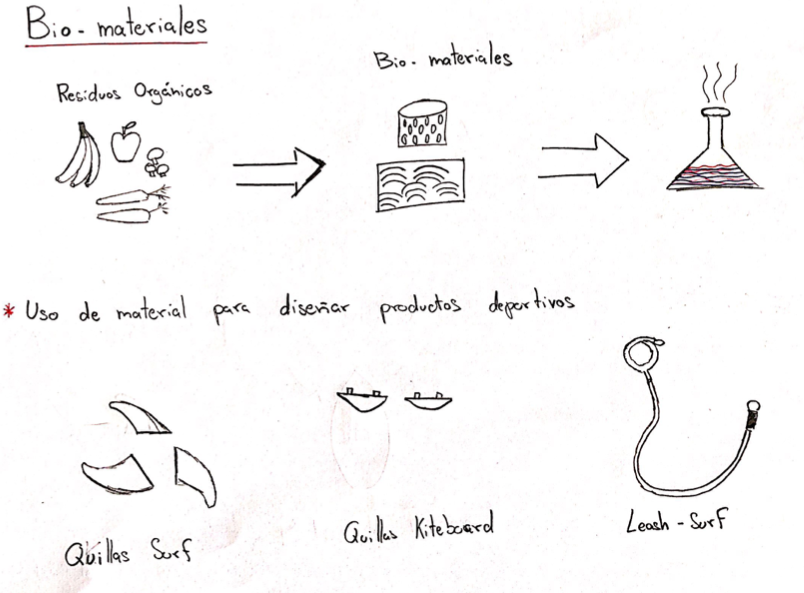 Bio-materiales
Residuos Orgánicos
Bio-materiales
* Uso de material para diseñar productos deportivos
Quillas Surf
Quillas Kiteboard
Leash-Surf